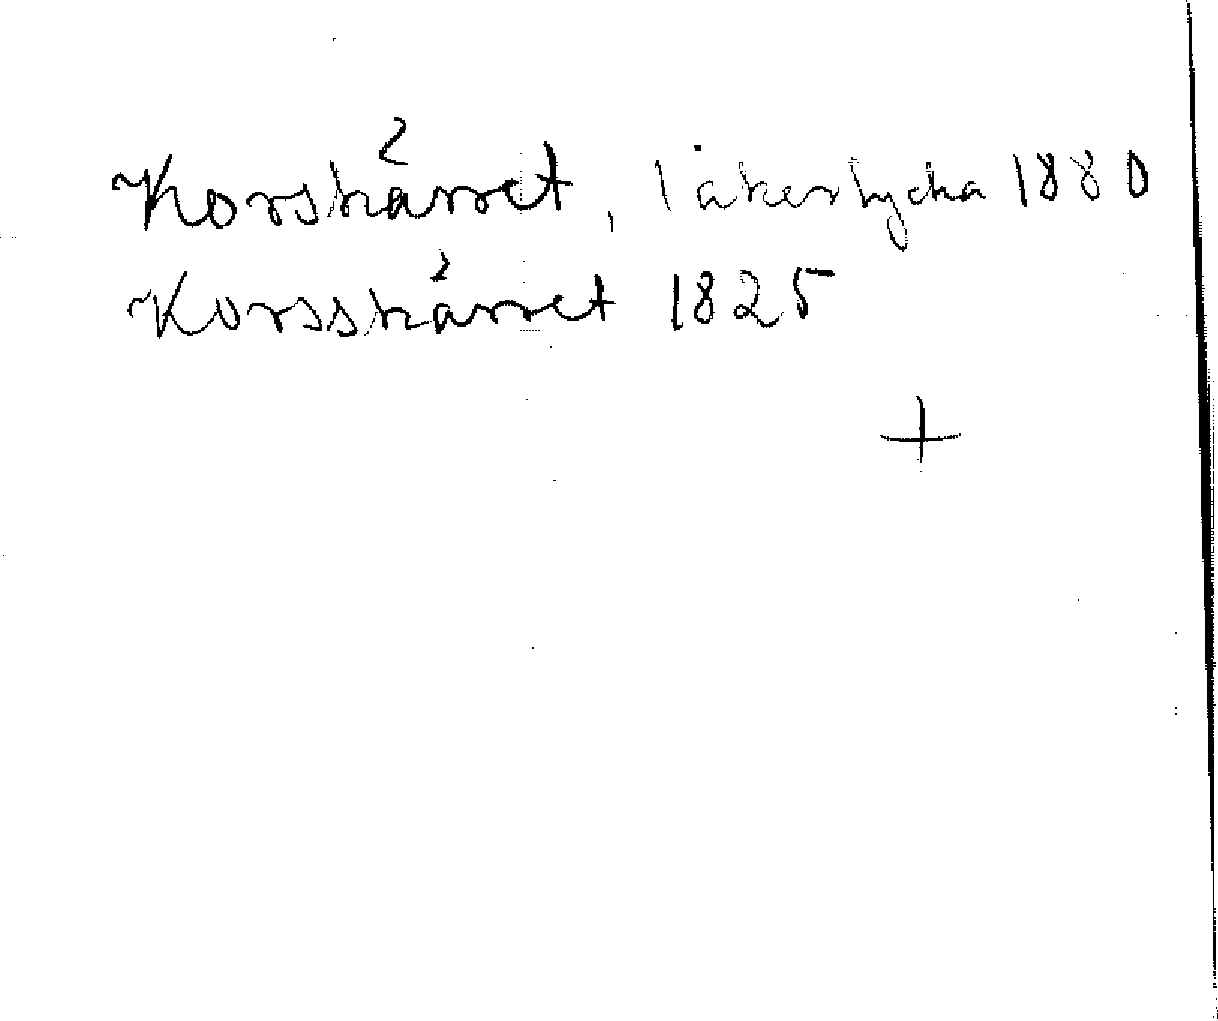 Korskärret, 1 åkerlycka 1880
Korsskärret 1825
+